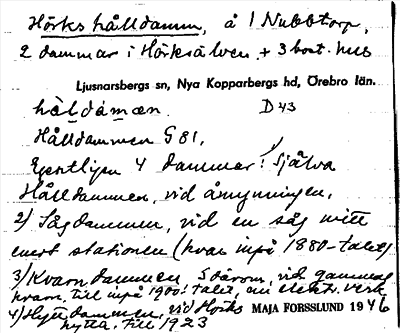 Hörks hålldamm, å 1 Nubbtorp,
2 dammar i Hörksälven + 3 bost. hus
Ljusnarsbergs sn, Nya Kopparbergs hd, Örebro län.
håldamen D 43
Hålldammen G 81,
Egentligen 4 dammar: 1) själva
Hålldammen, vid åmynningen,
2) Sågdammen, vid en såg mitt
emot stationen (kvar inpå 1880-talet)
3) Kvarndammen s därom, vid gammal
kvarn, till inpå 1900-talet, nu elektr. verk
4) Hyttdammen, vid Hörks MAJA FORSSLUND 1946
hytta, till 1923